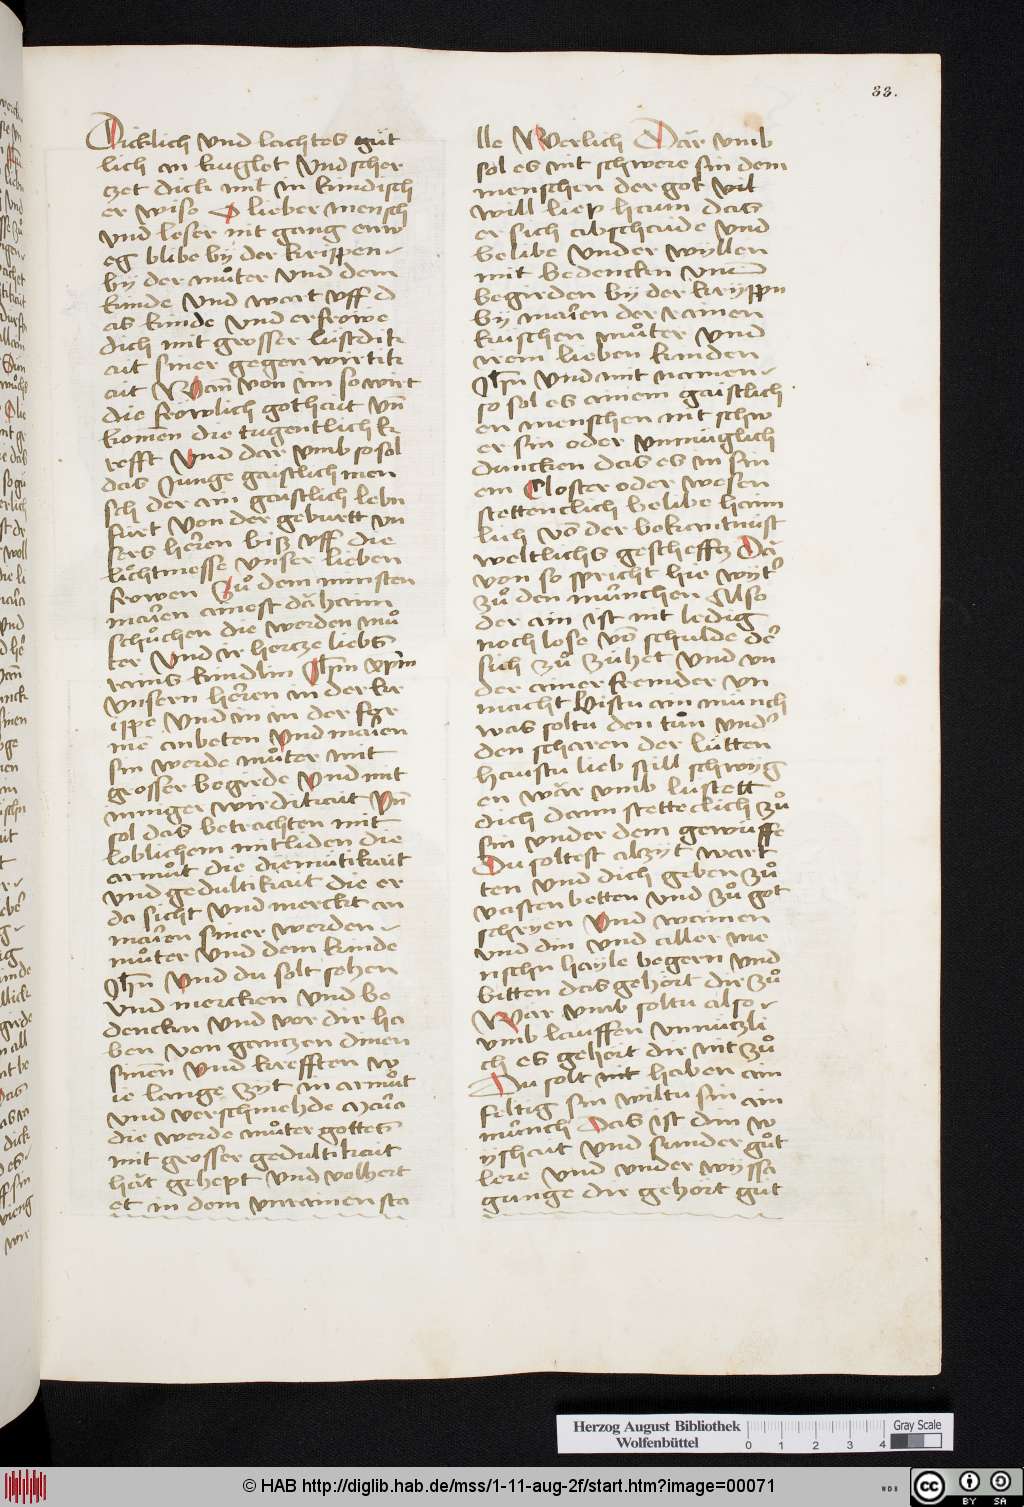 33.
Dicklich vnd lachtes güt
lich an kuglot Vnd scher
czet dick mit im kindisch
er wiso O lieber mensch
vnd leser nit gang enw
eg blibe by der krippen
by der muͦter vnd dem
kinde vnd wart vff d
as kinde vnd erfrowe
dich mit grosser lustdik
ait siner gegen wirtik
ait Wañ von im so wirt
die frowlich gothait vn̄
komen die tugentlich k
refft Vnd dar vmb so sol
das Junge gaistlich men
sch der ain gaistlich lebn
fürt von der geburtt vn
sers herren bisz vff die
liechtmesse vnser lieben
frowen Zuͦ dem minsten
maren ainest da haim
schuͦchen die werden muͦ
ter vnd ir hercze liebs
rains kindlin Jhm xpm
vnsern herren in der kr
ippe vnd in in der for
me anbeten vnd maren
sin werde muͦter mit
grosser begirde vnd mit
inniger wirdikait Vn̄
sol das betrachten mit
loblichem mitliden die
armuͦt die diemuͤtikait
vnd gedultikait die er
da sicht vnd merckt an
maren siner werden
muͦter vnd dem kinde
Jhm Vnd du solt sehen
vnd mercken vnd be
dencken vnd vor dir ha
ben von ganczen dinen
sinen vnd krefften w
ie lange zyt in armuͦt
vnd verschmehde Maria
die werde muͦter gottes
mit grosser gedultikait
hat gehept vnd volhert
et in dem vnrainen sta
lle Werlich Dar vmb
sol es nit schwere sin dem
menschen der got vil
will liep haun das
er sich abschaide vnd
belibe vnder wyllen
mit bedencken vnd
begirden by der kryppn
by maren der rainen
küischen muͦter vnd
irem lieben kinden
Jhm vnd mit namen
so sol es ainem gaistlich
en menschen nit schw
er sin oder vnmüglich
duncken das es in sin
em Closter oder wesen
stettenclich belibe haim
lich vō der bekantnüst
weltlichs gescheffz Da
von so spricht hie wyt
zuͦ den münchen Also
der ain ist nit ledig
noch lose vō schulde der
sich zuͦ zühet vnd vn
der ainer fremder vn
macht Bistu ain münch
was soltu den tuͦn vnder
den scharen der lütten
haustu lieb still schwyg
en war vmb lustett
dich dann stetteclich zuͦ
sin vnder dem gewüffe
Du soltest alzyt wart
ten vnd dich geben zuͦ
vasten betten vnd zuͦ got
schryen Vnd wainen
vnd din vnd aller me
nschn hayle begern vnd
bitten das gehört dir zuͦ
War vmb soltu also
vmb lauffen vnnüczli
ch es gehört dir nit zuͦ
Du solt nit haben ain
feltig sin wiltu sin ain
münch Das ist din w
yshait vnd sunder guͦt
lere vnd vnder wyssa
gunge dir gehört güt
Herzog August Bibliothek
Wolfenbüttel
0 1 2 3 4
Gray Scale
© HAB http://diglib.hab.de/mss/1-11-aug-2f/start.htm?image=00071
WDB
CC BY SA